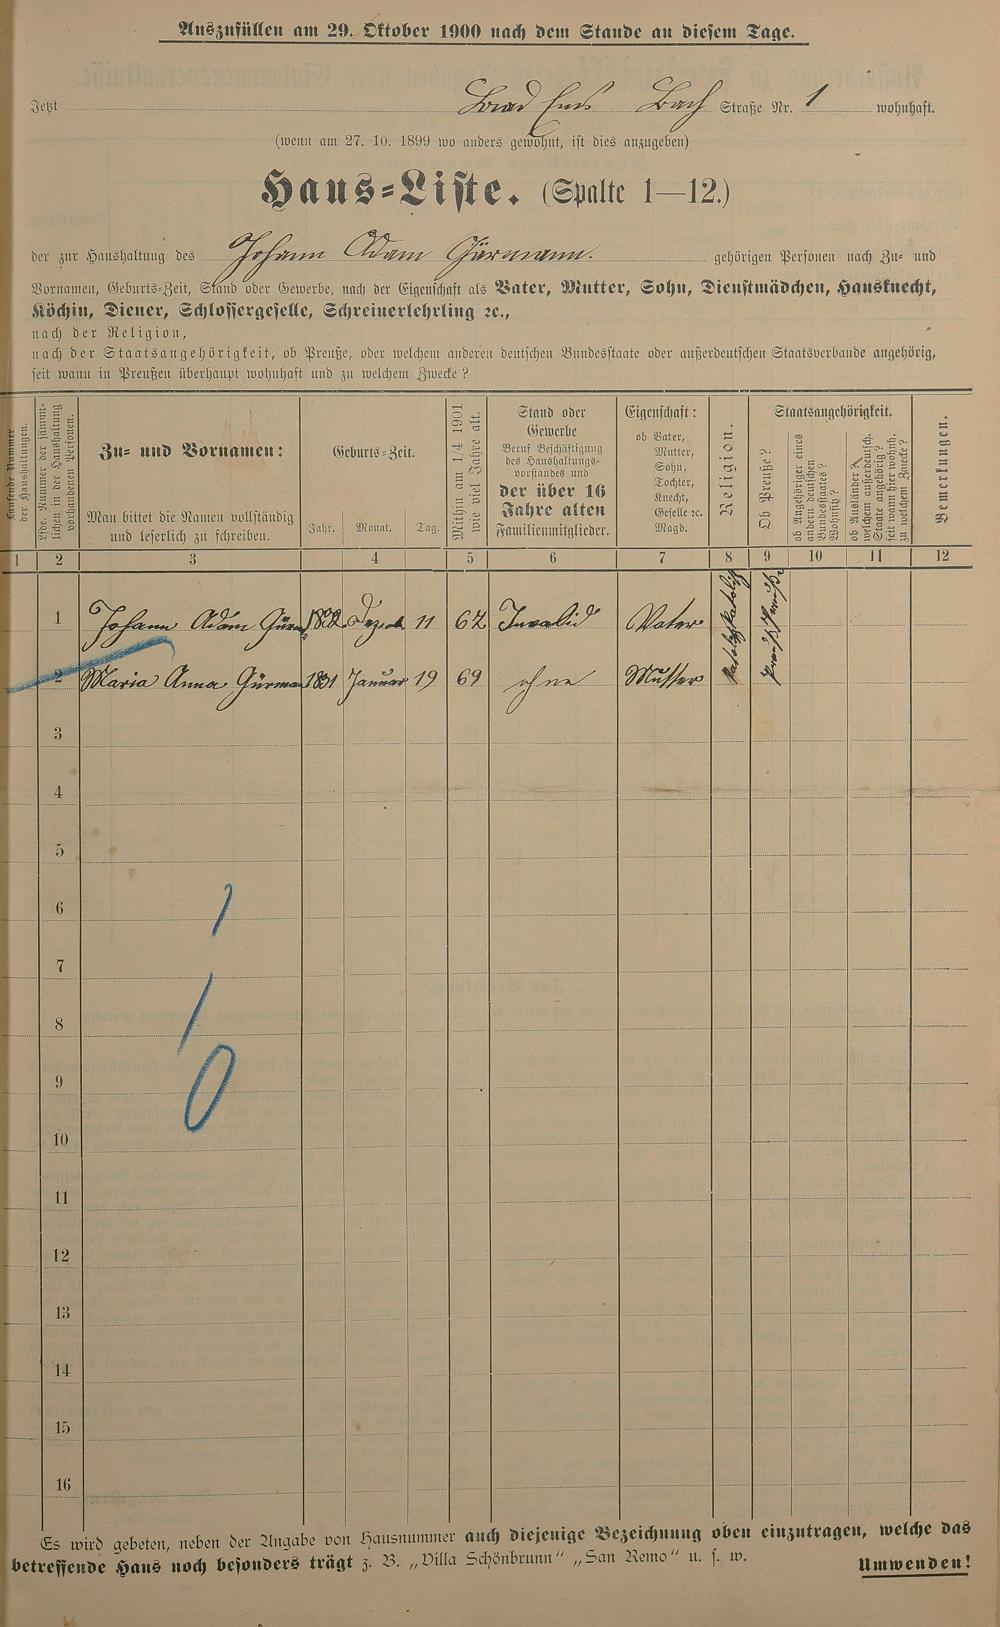 Auszufüllen am 29. Oktober 1900 nach dem Stande an diesem Tage.
Jetzt Bad Ems Bach Straße Nr. 1 wohnhaft.
(wenn am 27. 10. 1899 wo anders gewohnt, ist dies anzugeben)
Haus-Liste. (Spalte 1—12.)
der zur Haushaltung des Johann Adam Gürmann. gehörigen Personen nach Zu- und
Vornamen, Geburts-Zeit, Stand oder Gewerbe, nach der Eigenschaft als Vater, Mutter, Sohn, Dienstmädchen, Hausknecht,
Köchin, Diener, Schlossergeselle, Schreinerlehrling ꝛc.,
nach der Religion,
nach der Staatsangehörigkeit, ob Preuße, oder welchem anderen deutschen Bundesstaate oder außerdeutschen Staatsverbande angehörig,
seit wann in Preußen überhaupt wohnhaft und zu welchem Zwecke?
Laufende Nummer
der Haushaltungen.
Lfde. Nummer der sämmt-
lichen in der Haushaltung
vorhandenen Personen.
Zu- und Vornamen:
Man bittet die Namen vollständig
und leserlich zu schreiben.
Geburts-Zeit.
Jahr. Monat. Tag.
Mithin am 1/4 1901
wie viel Jahre alt.
Stand oder
Gewerbe
Beruf Beschäftigung
des Haushaltungs-
vorstandes und
der über 16
Jahre alten
Familienmitglieder.
Eigenschaft:
ob Vater,
Mutter,
Sohn,
Tochter,
Knecht,
Geselle ꝛc.
Magd.
Religion.
Staatsangehörigkeit.
Ob Preuße?
ob Angehöriger eines
andern deutschen
Bundesstaates?
Wohnsitz?
ob Ausländer?
welchem außerdeutsch.
Staate angehörig?
seit wann hier wohnh.
zu welchem Zwecke?
Bemerkungen.
1 2 3 4 5 6 7 8 9 10 11 12
1 Johann Adam 1832 Dezemb 11 67 Invalid Vater
2 Maria Anna Gürman 1831 Januar 19 69 ohne Mutter
3
4
5
6
7
8
9
10
11
12
13
14
15
16
Es wird gebeten, neben der Angabe von Hausnummer auch diejenige Bezeichnung oben einzutragen, welche das
betreffende Haus noch besonders trägt z. B. „Villa Schönbrunn“ „San Remo“ u. s. w. Umwenden!